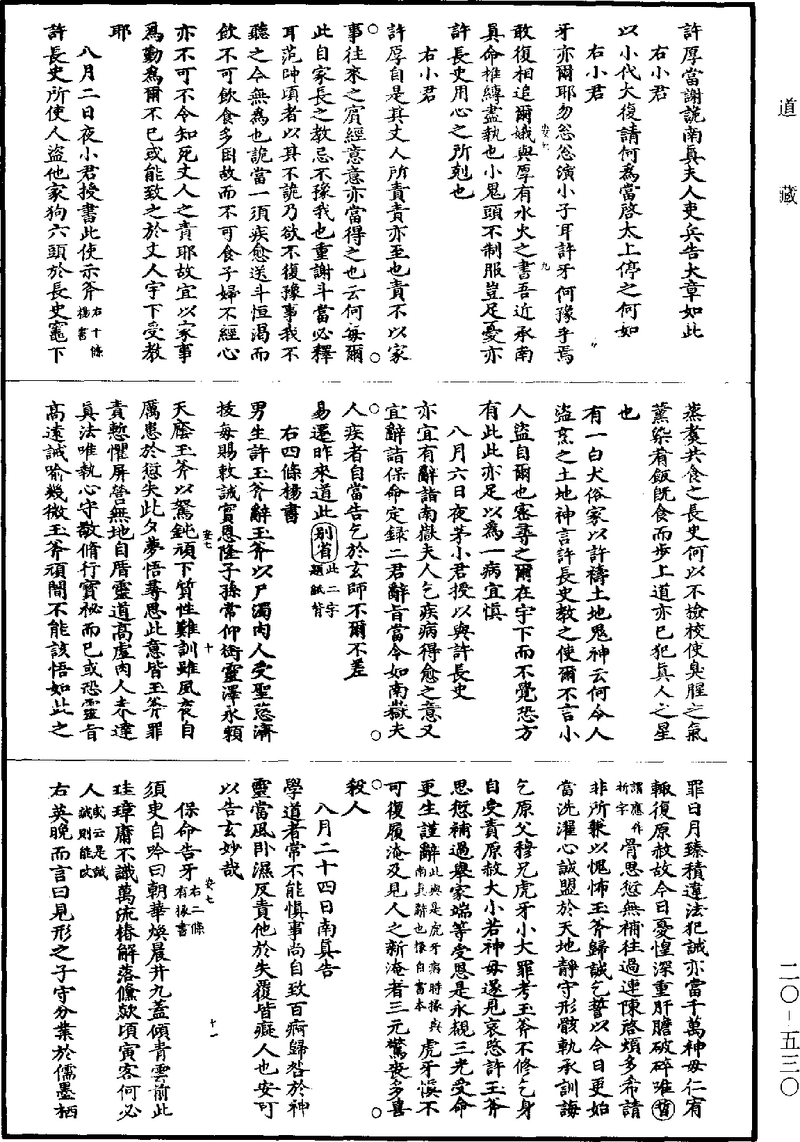 道藏
許厚當謝詭南真夫人吏兵告大章如此
右小君
以小代大復請何為當啓太上停之何如
右小君
牙亦爾耶勿忩忩演小子耳許牙何豫乎焉
敢復相追爾娥與厚有水火之書吾近承南
真命椎縛盡執也小鬼頭不制服豈足憂亦
許長史用心之所剋也
右小君
許厚自是其丈人所責責亦至也責不以家
事往來之賔經意意亦當得之也云何每爾
此自家長之教忌不豫我也重謝斗當必釋
耳范帥頃者以其不詭乃欲不復豫事我不
聽之今無為也詭當一須疾愈送斗恒渴而
飲不可飲食多因故而不可食子婦不經心
亦不可不令知死丈人之責耶故宜以家事
為勤為爾不已或能致之於丈人宇下受教
耶
八月二日夜小君授書此使示斧右十條楊書
許長史所使人盜他家狗六頭於長史竈下
蒸煑共食之長史何以不檢校使臭腥之氣
薰染肴飯旣食而步上道亦已犯真人之星
也
有一白犬俗家以許禱土地鬼神云何令人
盜烹之土地神言許長史教之使爾不言小
人盜自爾也密尋之爾在宇下而不覺恐方
有此此亦足以為一病宜慎
八月六日夜茅小君授以與許長史
亦宜有辭詣南嶽夫人乞疾病得愈之意又
宜辭詣保命定錄二君辭旨當令如南嶽夫
人疾者自當告乞於玄師不爾不差
易遷昨來道此別省此二字題紙背
右四條楊書
男生許玉斧辭玉斧以尸濁肉人受聖慈濟
拔每賜敕誡實恩隆子孫常仰銜靈澤永賴
天廕玉斧以駑鈍頑下質性難訓雖夙夜自
厲患於愆失此夕夢悟尋思此意皆玉斧罪
責慙懼屏營無地自厝靈道高虛肉人未達
真法唯執心守敬脩行寶祕而已或恐靈旨
高遠誡喻幾微玉斧頑闇不能該悟如此之
罪日月臻積違法犯誡亦當千萬神母仁宥
輙復原赦故今日憂惶深重肝膽破碎唯㫖
謂應作折字骨思愆無補往過連陳啓煩多希請
非所賴以愧怖玉斧歸誠乞誓以今日更始
當洗濯心誠盟於天地靜守形骸執承訓誨
乞原父穆兄虎牙小大罪考玉斧不修乞身
自受責原赦大小若神母遂見哀慜許玉斧
思愆補過舉家端等受恩是永觀三光受命
更生謹辭此與是虎牙病時掾與南真辭也掾自書本虎牙慎不
可復履淹及見人之新淹者三元驚喪多喜
殺人
八月二十四日南真告
學道者常不能慎事尚自致百痾歸咎於神
靈當風臥濕反責他於失覆皆癡人也安可
以告玄妙哉
保命告牙右二條有掾書
須吏自吟曰朝華煥晨井九蓋傾青雲前此
珪璋庸不識萬流椿解落儵欻頃寅客何必
人或云是誠誠則能改
右英晚而言曰見形之子守分業於儒墨栖
安七 九
安七 十
安七 十一
二〇-五三〇